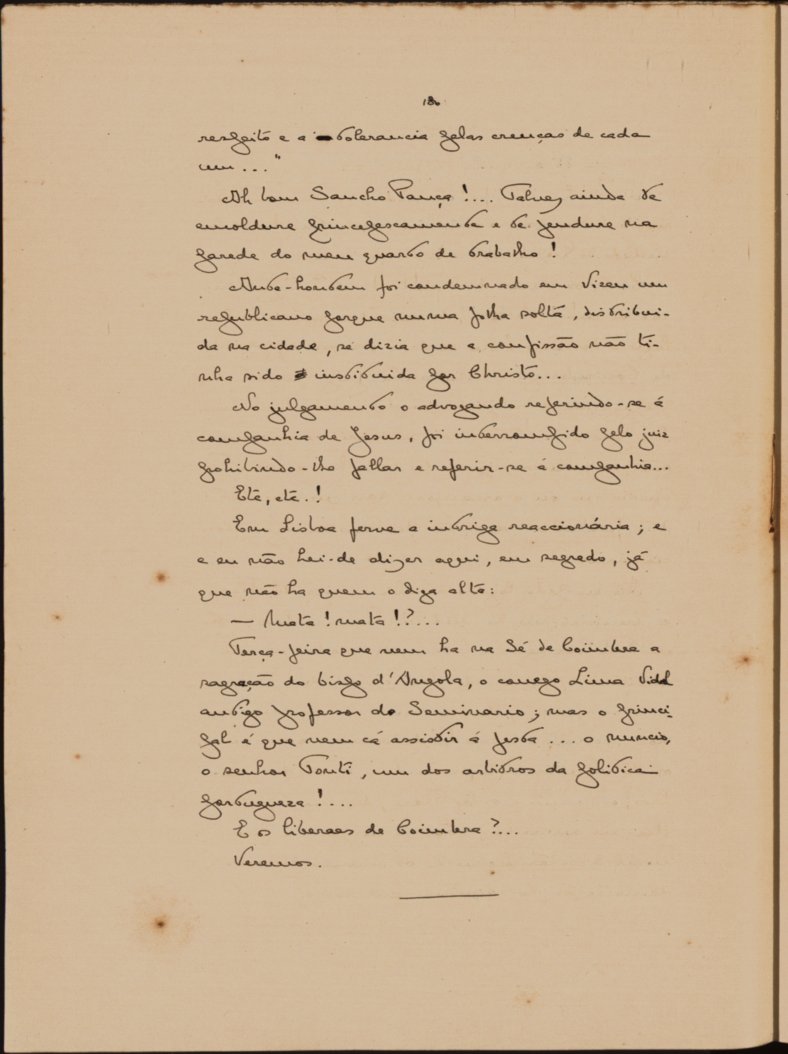 180
respeito e a tolerancia pelas crenças de cada
um..."
Ah bom Sancho Pança!... Talvez ainda te
emoldure principescamente e te pendure na
parede do meu quarto de trabalho!
Ante-hontem foi condemnado em Vizeu um
republicano porque numa folha solta, distribui-
da na cidade, se dizia que a confissão não ti-
nha sido instituida por Christo...
No julgamento o advogando referindo-se á
companhia de Jesus, foi interrompido pelo juiz
prohibindo-lho fallar e referir-se á companhia...
Etc, etc.!
Em Lisboa ferve a intriga reaccionária; e
e eu não hei-de dizer aqui, em segredo, já
que não ha quem o diga alto:
— Mata! mata!?...
Terça-feira que vem ha na Sé de Coimbra a
sagração do bispo d'Angola, o conego Lima Vidal
antigo professor do Seminario; mas o princi-
pal é que vem cá assistir á festa... o nuncio,
o senhor Tonti, um dos arbitros da politica
portugueza!...
E os liberaes de Coimbra?...
Veremos.